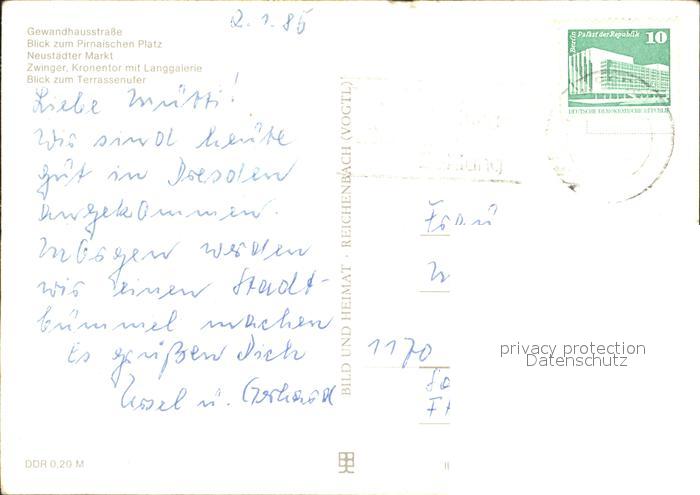 2.1.85
Gewandhausstraße
Blick zum Pirnaischen Platz
Neustädter Markt
Zwinger, Kronentor mit Langgalerie
Blick zum Terrassenufer
Liebe Mutti!
Wir sind heute
gut in Dresden
angekommen.
Morgen werden
wir einen Stadt-
bummel machen
Es grüßen Dich
Ursel u. Gerhard
DDR 0,20 M
BILD UND HEIMAT · REICHENBACH (VOGTL)
Berlin Palast der Republik 10
DEUTSCHE DEMOKRATISCHE REPUBLIK
Frau
1170
privacy protection
Datenschutz